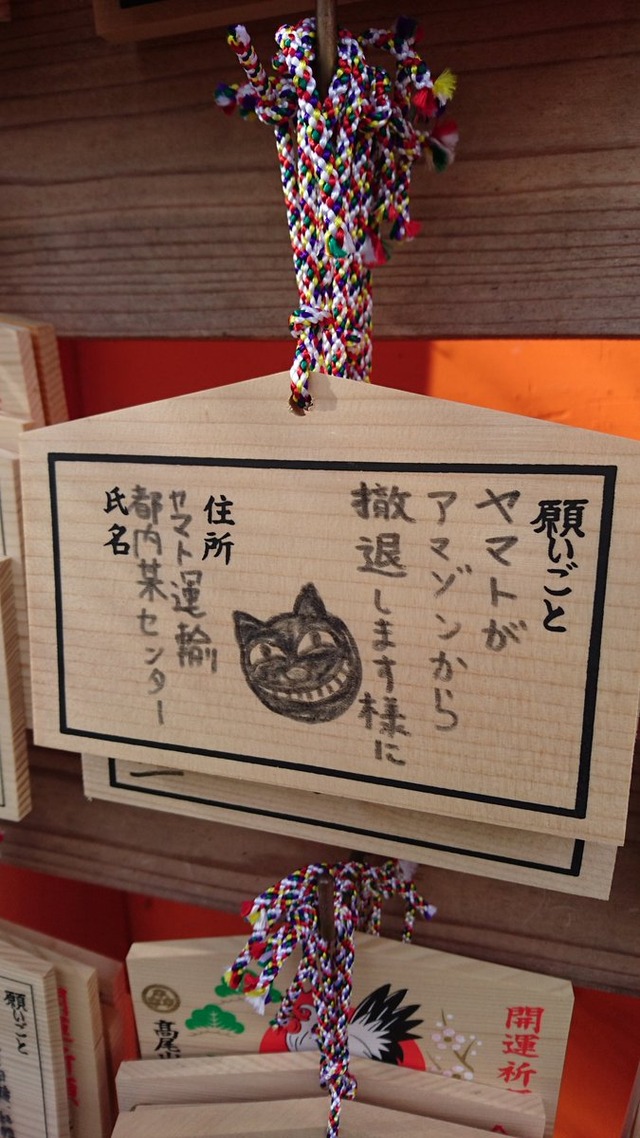 願いごと
ヤマトが
アマゾンから
撤退します様に
住所
ヤマト運輸
都内某センター
氏名
開運祈
高尾山
願いごと